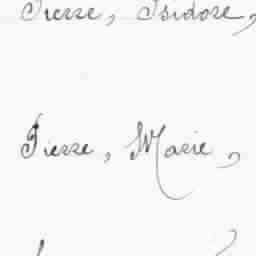 Pierre, Isidore,
Pierre, Marie,